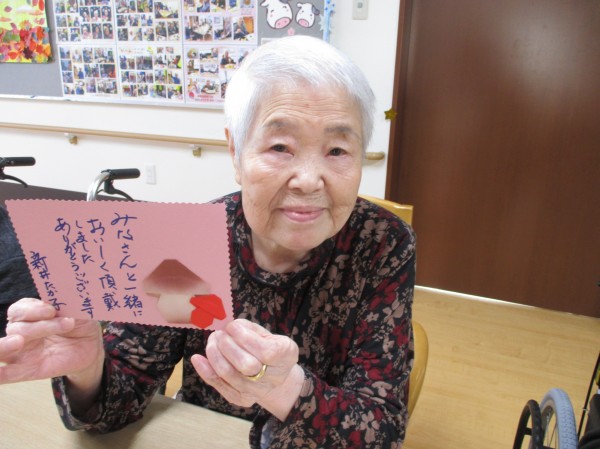 みなさんと一緒に
おいしく頂戴
しました
ありがとうございます
新井たか子